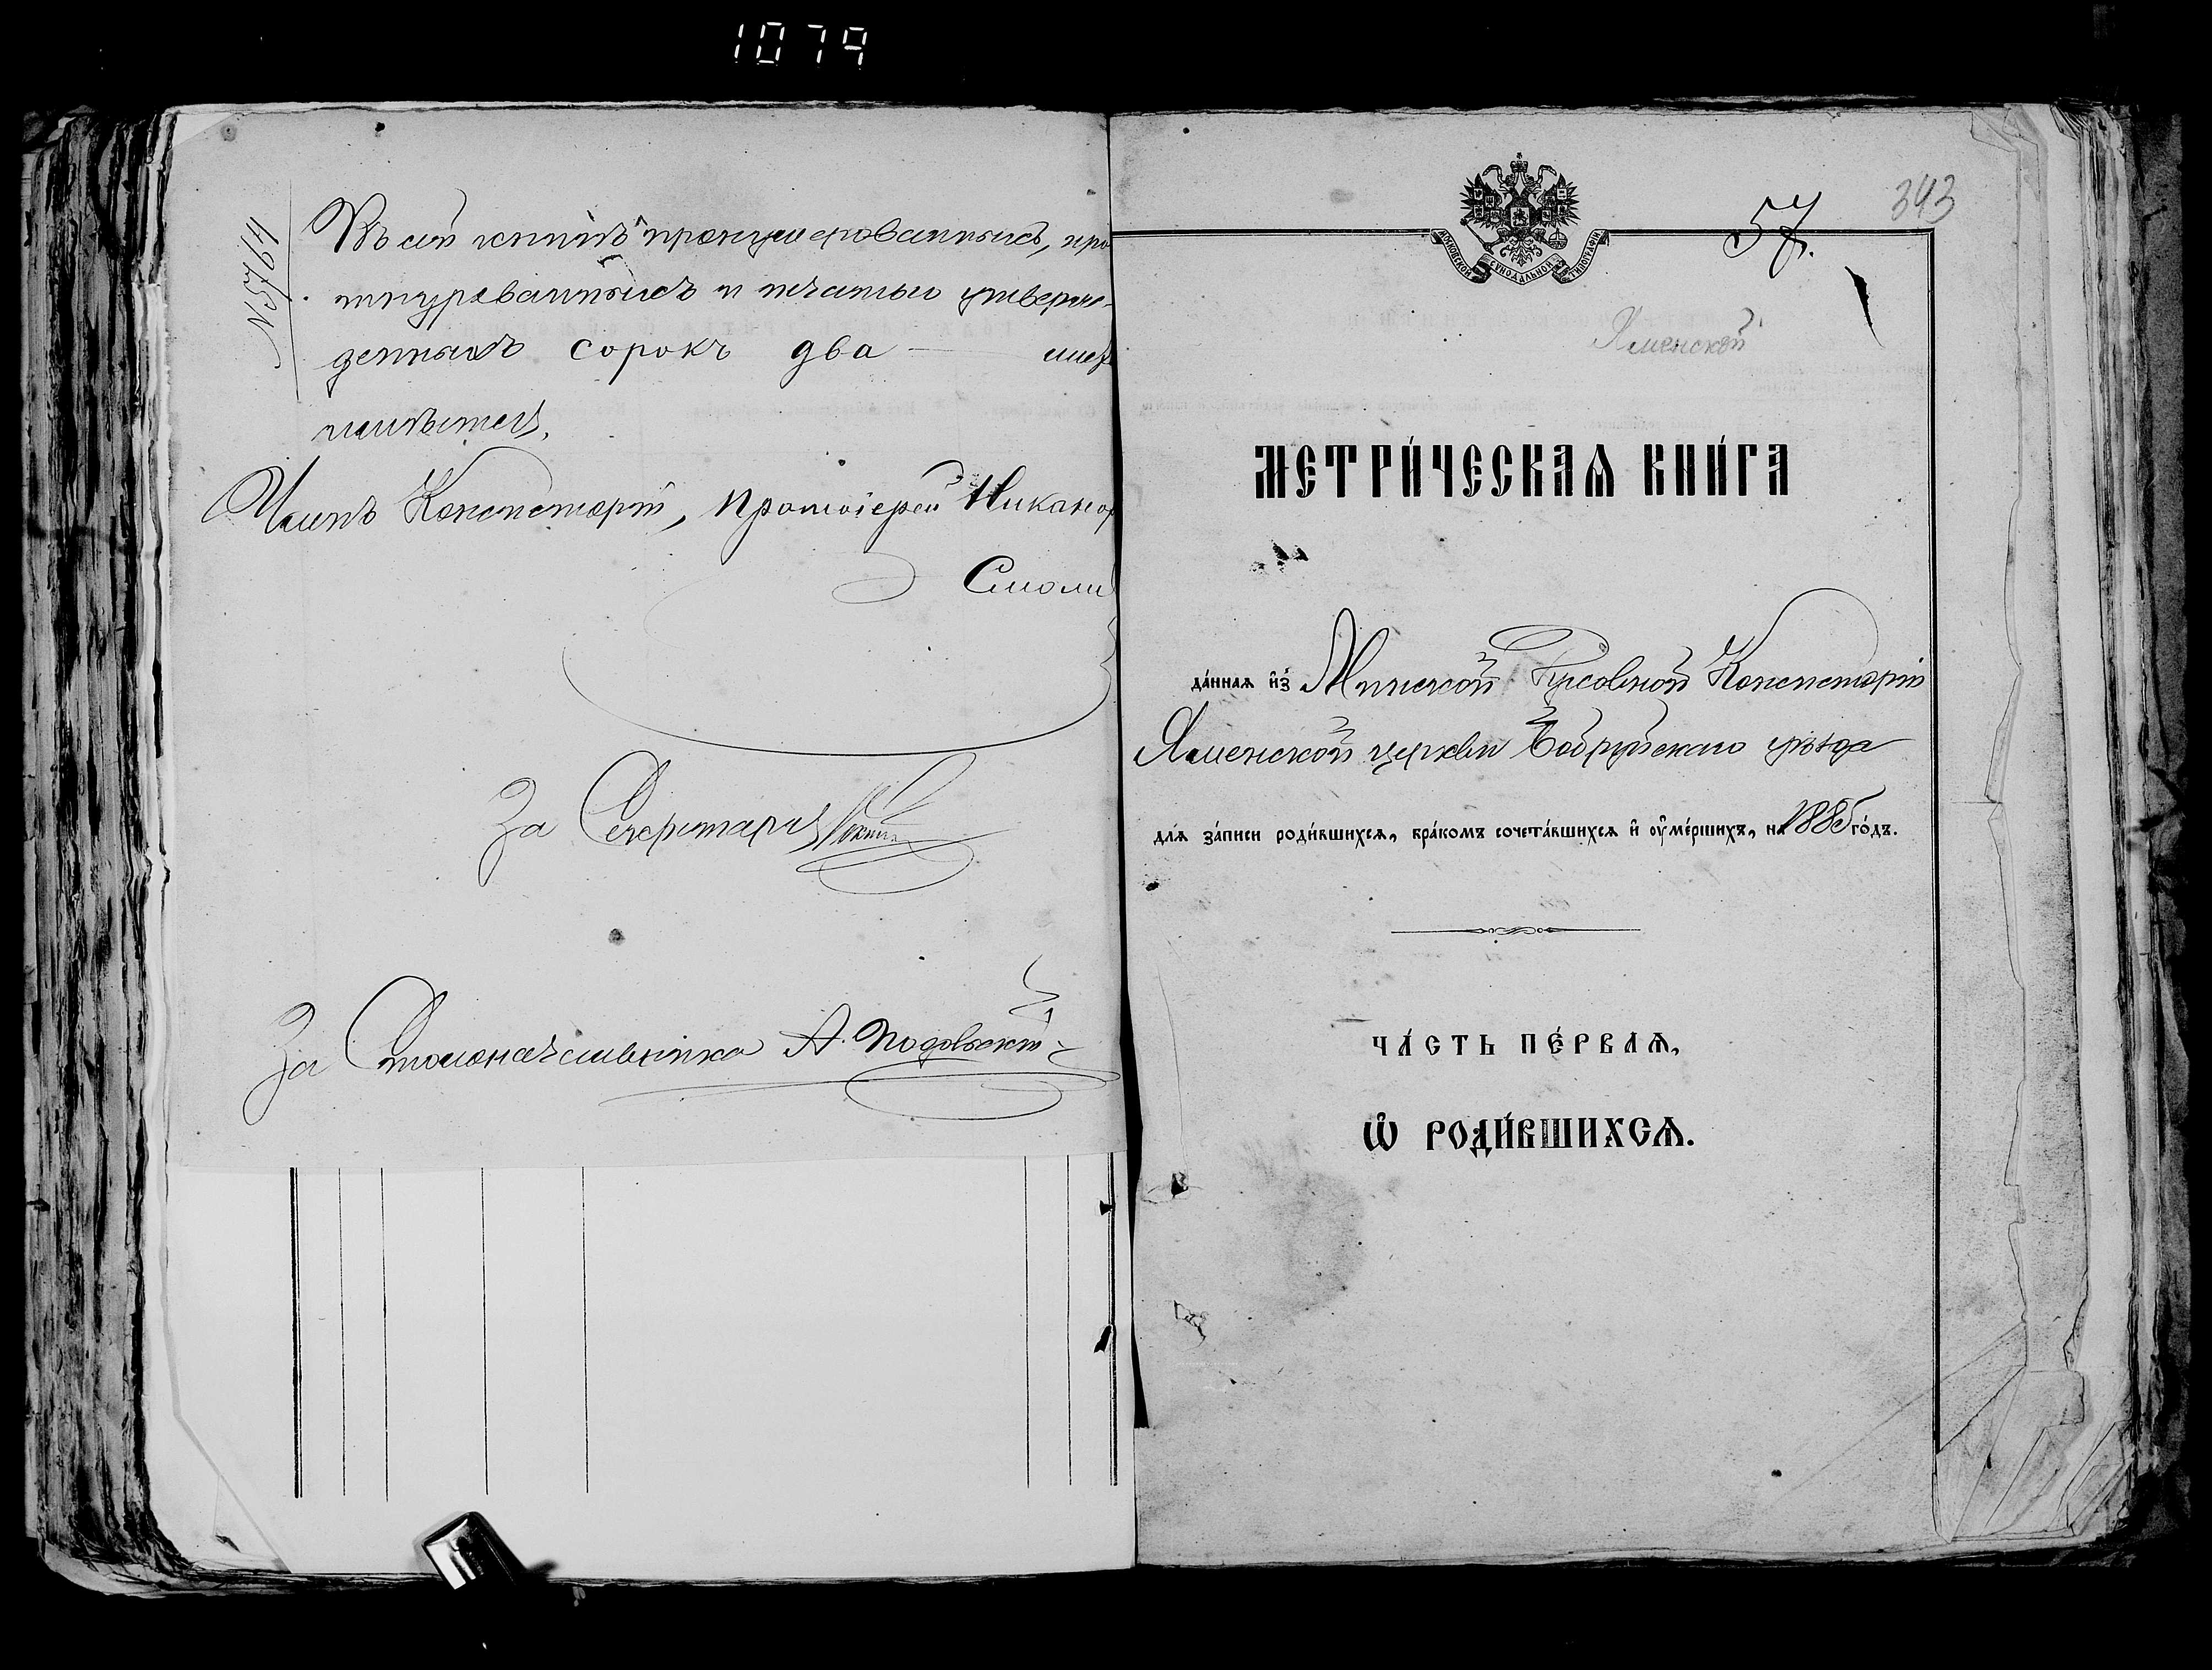 1079
№ 5764
Въ сей книгѣ пронумерованныхъ, про
шнурованныхъ и печатью утверж-
денныхъ сорокъ два — лис
имѣется.
Членъ Консисторіи, Протоіерей Никанор
Смоли
За Секретаря
За Столоначальника А.
343
57.
МОСКОВСКОЙ СѴНОДАЛЬНОЙ ТИПОГРАФІИ
Яменской
МЕТРИ́ЧЕСКАѦ КНИ́ГА
да́ннаѧ и҆з̾ Минской Духовной Консисторіи
Яменской церкви Бобруйскаго уѣзда
для за́писи роди́вшихсѧ, бра́комъ сочета́вшихсѧ и҆ оу҆ме́ршихъ, на 1885 го́дъ.
ЧА́СТЬ ПЕ́РВАѦ,
Ѽ РОДИ́ВШИХСѦ.